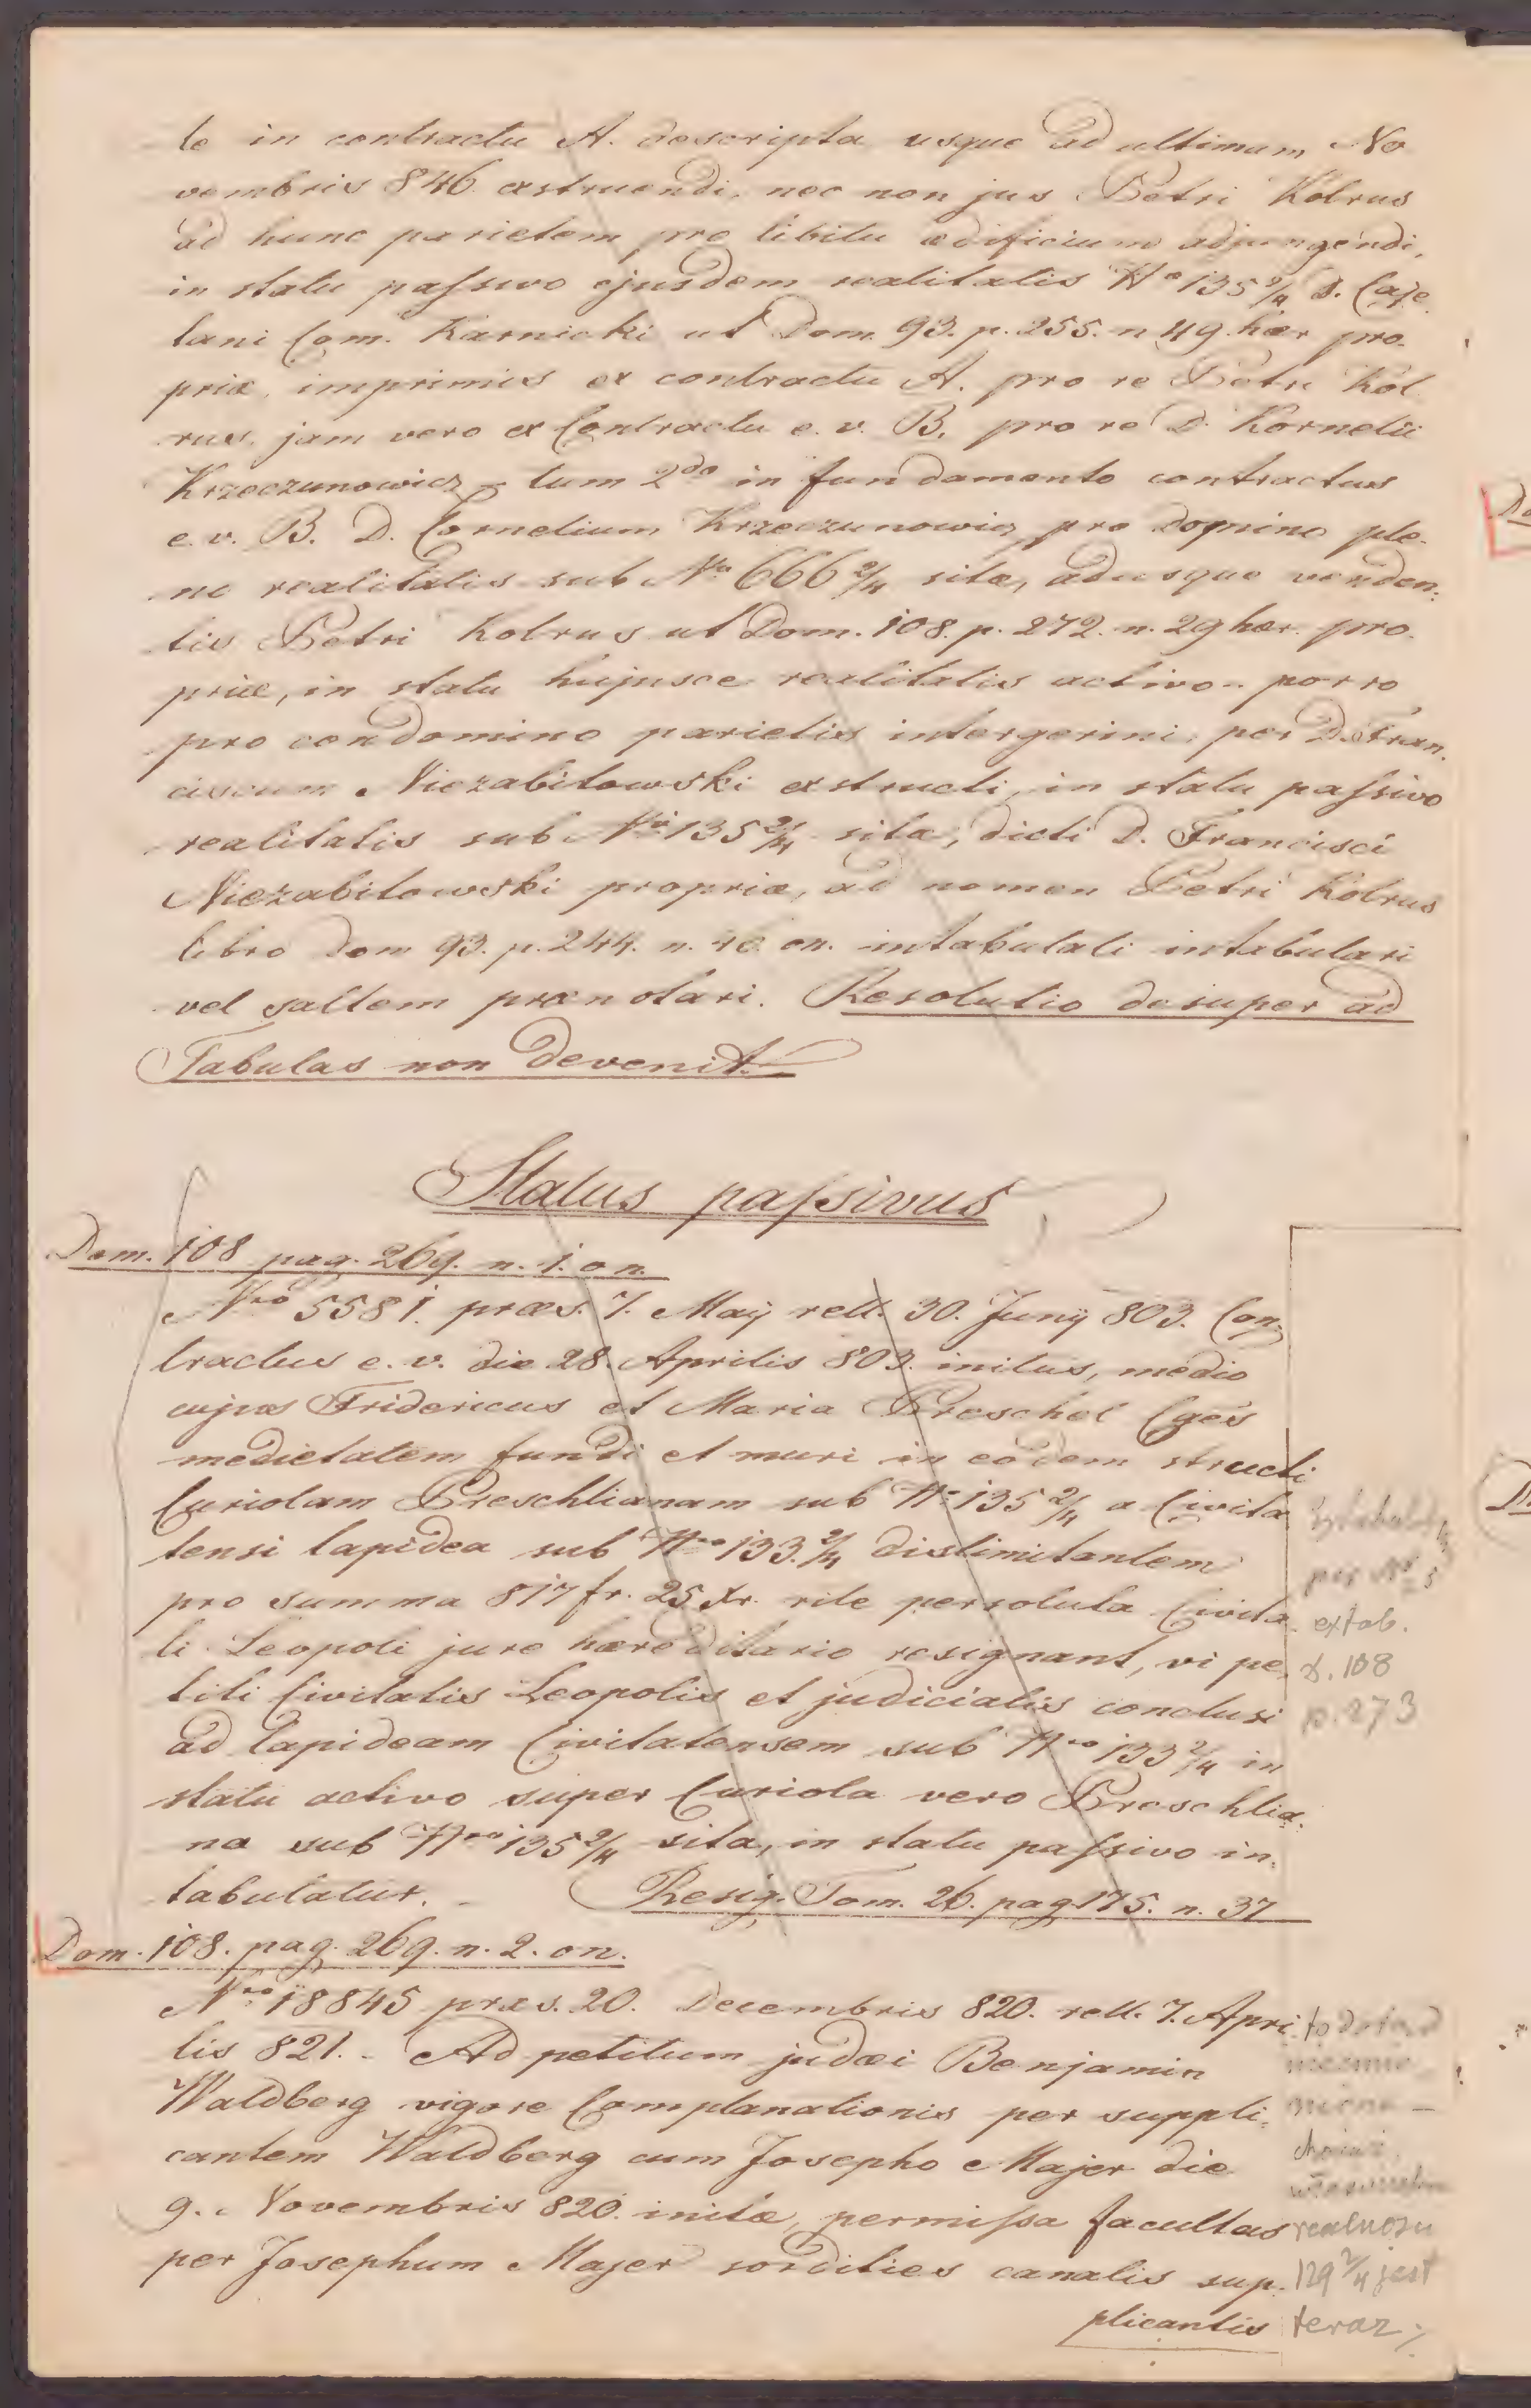 le in contractu A. descripta usque ad ultimam No
vembris 846. exstruendi, nec non jus Petri Kolrus
ad hunc parietem pro libitu ædificium adjungendi,
in statu passivo ejusdem realitatis Nro 135 2/4 D. Caje
tani Com. Karnicki ut Dom. 93. p. 255. n 49. hær pro-
priæ, imprimis ex contractu A. pro re Petri Kol
rus, jam vero ex Contractu e. v. B. pro re D. Kornelii
Krzeczunowicz – tum 2do in fundamento contractus
e. v. B. D. Cornelium Krzeczunowicz pro Domino ple-
no realitatis sub Nro 666 2/4 sitæ, adusque venden-
tis Petri Kolrus ut Dom. 108. p. 272. n. 29 hær. pro-
priæ, in statu hujusce realitatis activo – porro
pro condomino parietis intergerini, per D. Fran-
ciscum Niezabitowski exstructi, in statu passivo
realitatis sub Nro 135 2/4 sitæ, dicti D. Francisci
Niezabitowski propriæ, ad nomen Petri Kolrus
libro Dom 93. p. 244. n. 40. on. intabulati intabulari
vel saltem prænotari. Resolutio desuper ad
Tabulas non devenit.
Status passivus
Dom. 108 pag. 269. n. 1. on.
Nro 5581. præs. 7. Maij rell. 30. Junij 803. Con-
tractus e. v. die 28. Aprilis 803. initus, medio
cujus Fridericus et Maria Preschel Cges
medietatem fundi et muri in eodem structi
Curiolam Preschlianam sub Nro 135 2/4 a Civita
tensi lapidea sub Nro 133. 2/4 distimitantem
pro summa 817 fr. 25 xr. rite persoluta Civita-
ti Leopoli jure hæreditario resignant, vi pe-
titi Civitatis Leopolis et judicialis conclusi
ad lapideam Civitatensem sub Nro 133 2/4 in
statu activo super Curiola vero Preschlia-
na sub Nro 135 2/4 sita, in statu passivo in-
tabulatur. Resig. Tom. 26. pag 175. n. 37
per Nr 5
extab.
d. 108
p. 273
Dom. 108. pag. 269. n. 2. on.
Nro 18845 præs. 20. Decembris 820. rell. 7. Apri
lis 821. – Ad petitum judæi Benjamin
Waldberg vigore Complanationis per suppli-
cantem Waldberg cum Josepho Majer die
9. Novembris 820. initæ, permissa facultas
per Josephum Majer sordities canalis sup-
plicantis
realnosci
129 2/4 jest
teraz